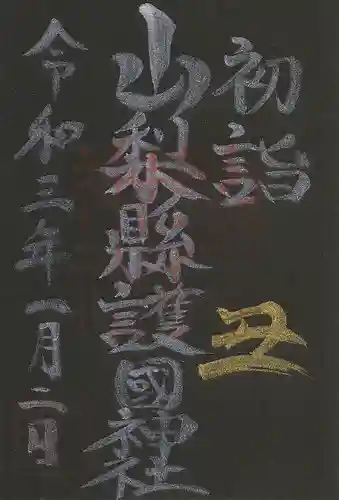 初詣
丑
山梨縣護國神社
令和三年一月二日